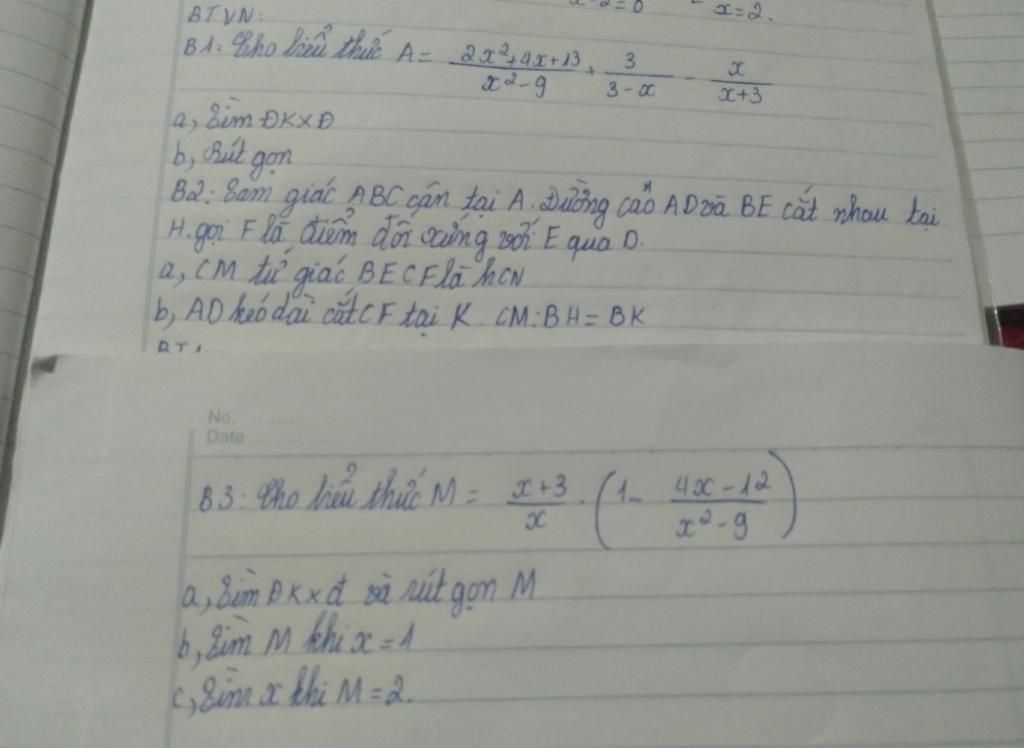 x-2=0 x=2.
BTVN:
B1: Cho biểu thức A = \frac{2x²+4x+13}{x²-9} + \frac{3}{3-x} - \frac{x}{x+3}
a, Tìm ĐKXĐ
b, Rút gọn
B2: Tam giác ABC cân tại A. Đường cao AD và BE cắt nhau tại
H. gọi F là điểm đối xứng với E qua D.
a, CM tứ giác BECF là hCN
b, AD kéo dài cắt CF tại K CM: BH = BK
No. ........
Date ..................
B3: Cho biểu thức M = \frac{x+3}{x} . (1 - \frac{4x-12}{x²-9})
a, Tìm ĐKxđ và rút gọn M
b, Tìm M khi x = 1
c, Tìm x khi M = 2.